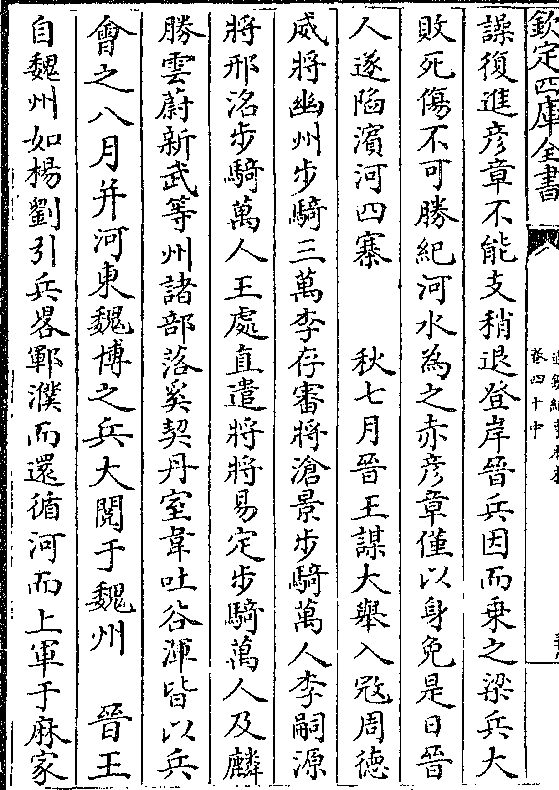 欽定四庫全書
卷四十中
譟復進彥章不能支稍退登岸晉兵因而乗之梁兵大
敗死傷不可勝紀河水為之赤彥章僅以身免是日晉
人遂陷濵河四寨　　秋七月晉王謀大舉入㓂周德
威將幽州步騎三萬李存審將滄景步騎萬人李嗣源
將邢洺步騎萬人王處直遣將將易定步騎萬人及麟
勝雲蔚新武等州諸部落奚契丹室韋吐谷渾皆以兵
會之八月并河東魏博之兵大閱于魏州　　晉王
自魏州如楊劉引兵畧鄆濮而還循河而上軍于麻家